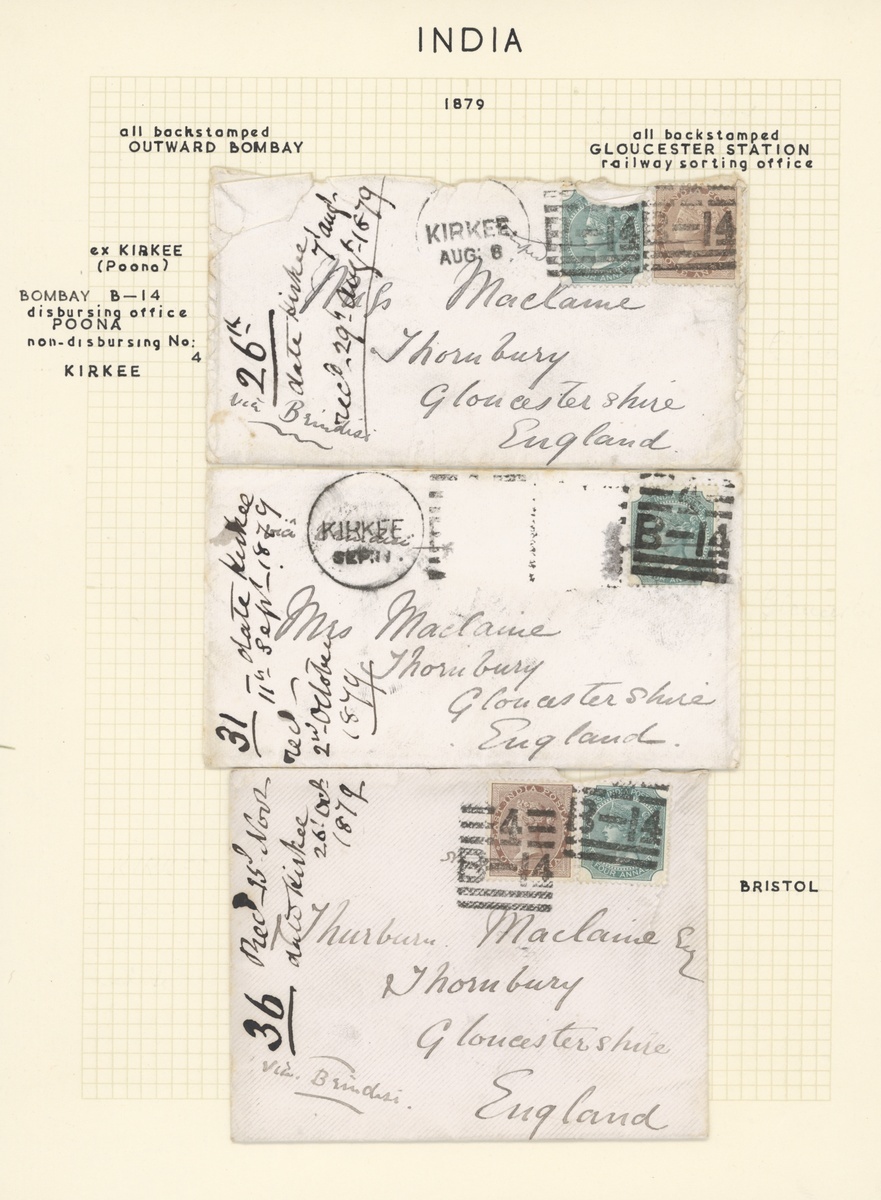 INDIA
1879
all backstamped
OUTWARD BOMBAY
all backstamped
GLOUCESTER STATION
railway sorting office
ex KIRKEE
(Poona)
BOMBAY B-14
disbursing office
POONA
non-disbursing No:
4
KIRKEE
KIRKEE.
AUG: 6
-14
-14
26th
date Kirkee
7th augt
recd 29th Augt 1879
Via Brindisi
Mrs Maclaine
Thornbury
Gloucestershire
England
KIRKEE
SEP: 11
B-14
via Brindisi
31
date Kirkee
11th Sept 1879
recd
2nd October
1879
Mrs Maclaine
Thornbury
Gloucestershire
England.
INDIA POSTAGE
4
B-14
B-14
FOUR ANNAS
36
Recd 15th Novr
date Kirkee
26th Oct
1879
Thurburn Maclaine Esq
Thornbury
Gloucestershire
England
via. Brindisi.
BRISTOL